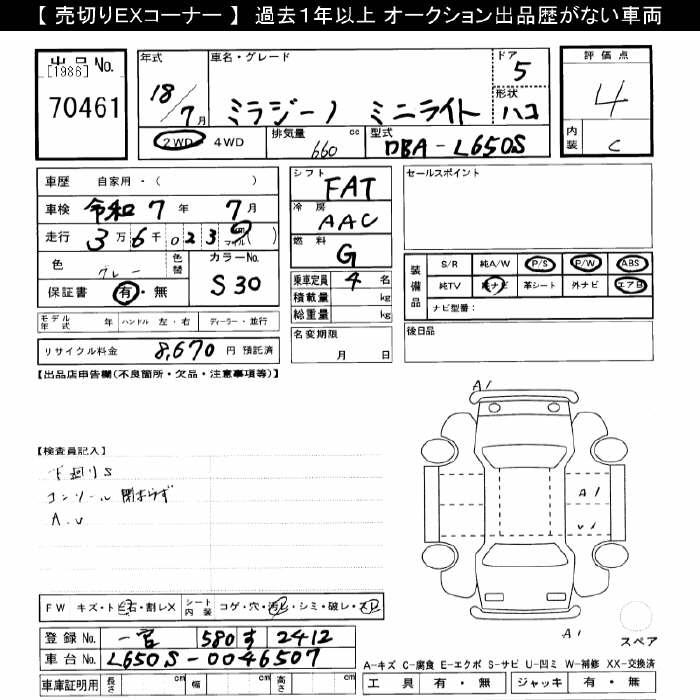 【 売切りEXコーナー 】 過去1年以上 オークション出品歴がない車両
出品No.
[1986]
70461
年式
18/7月
車名・グレード
ミラジーノ ミニライト
ドア
5
形状
ハコ
2WD・4WD
排気量 660 cc
型式 DBA-L650S
評価点
4
内装 C
車歴 自家用・( )
車検 令和7年 7月
走行 3万6千023 km マイル( )
色 グレー
色替
カラーNo.
S30
保証書 有・無
モデル年式 年 ハンドル 左・右 ディーラー・並行
リサイクル料金 8,670 円 預託済
シフト
FAT
冷房
AAC
燃料
G
乗車定員 4 名
積載量 kg
総重量 kg
名変期限
月 日
セールスポイント
装備品
S/R 純A/W P/S P/W ABS
純TV 純ナビ 革シート 外ナビ エアB
ナビ型番:
後日品
【出品店申告欄(不良箇所・欠品・注意事項等)】
【検査員記入】
下廻りS
コンソール閉まらず
A.U
A1
A1
U1
A1
スペア
FW キズ・ト石・割レX
シート内装 コゲ・穴・汚レ・シミ・破レ・スレ
登録No. 一宮 580 す 2412
車台No. L650S-0046507
車庫証明用 長さ cm 幅 cm 高さ cm
A-キズ C-腐食 E-エクボ S-サビ U-凹ミ W-補修 XX-交換済
工具 有・無 ジャッキ 有・無